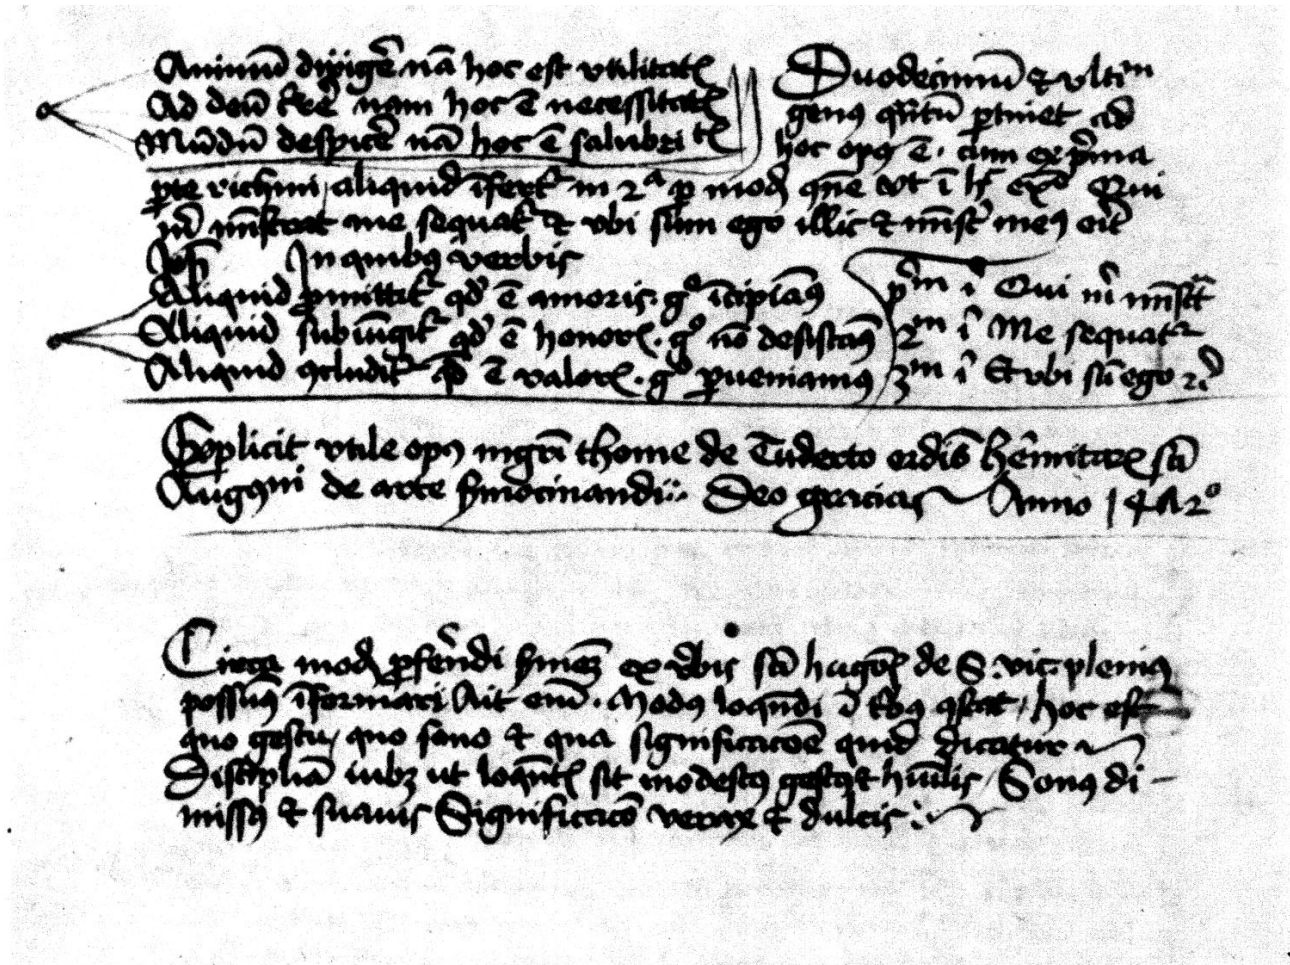 Animũ dirigẽ nã hoc est vtilitatꝭ
Ad deũ nam hoc ẽ necessitatꝭ
Mũdũ despicẽ nã hoc ẽ salubritꝭ
Duodecimũ & vltim
genꝰ qñtũ ꝑtinet ad
hoc opꝰ ẽ. cum ex pͥma
ꝑte richmi aliquid ĩfertᷣ in 2ᵃ ꝑ modũ Qui
mͥ mĩstrat me sequatᷣ & vbi sum ego illic & mĩstͬ meꝰ eit
Joh In quibꝰ verbis
Aliquid ꝓmittitᷣ qd̉ ẽ amoris. gͦ ĩcipiamꝰ
Aliquid subiũgitᷣ qd̉ ẽ honorꝭ. gͦ nõ desistamꝰ
Aliquid ꝯcluditᷣ qd̉ ẽ valorꝭ. gͦ ꝑueniamus
pͥm ĩ Qui mͥ mĩstrat
2m ĩ Me sequatᷣ
3m ĩ Et vbi sũ ego
Explicit vtile opꝰ mgr̃i thome de Tuderto ordĩs hẽmitarꝝ sc̃i
Augꝰni de arte s̃mocinandi. Deo gracias Anno 1472º
Circa modũ ꝓferẽdi s̃monẽ ex v̉bis sc̃i hugõꝭ de S. vic. plenius
possumꝰ ĩformari Ait eni. Modus loquẽdi ĩ tͥbꝰ ꝯstat, hoc est
quo gestu, quo sono & qua significacõe quid dicatur
Disciplĩa iubꝫ ut loquẽtꝭ sit modestꝰ gestꝰ & hũilis, Sonus di-
missꝰ & suauis Significacõ verax & dulcis